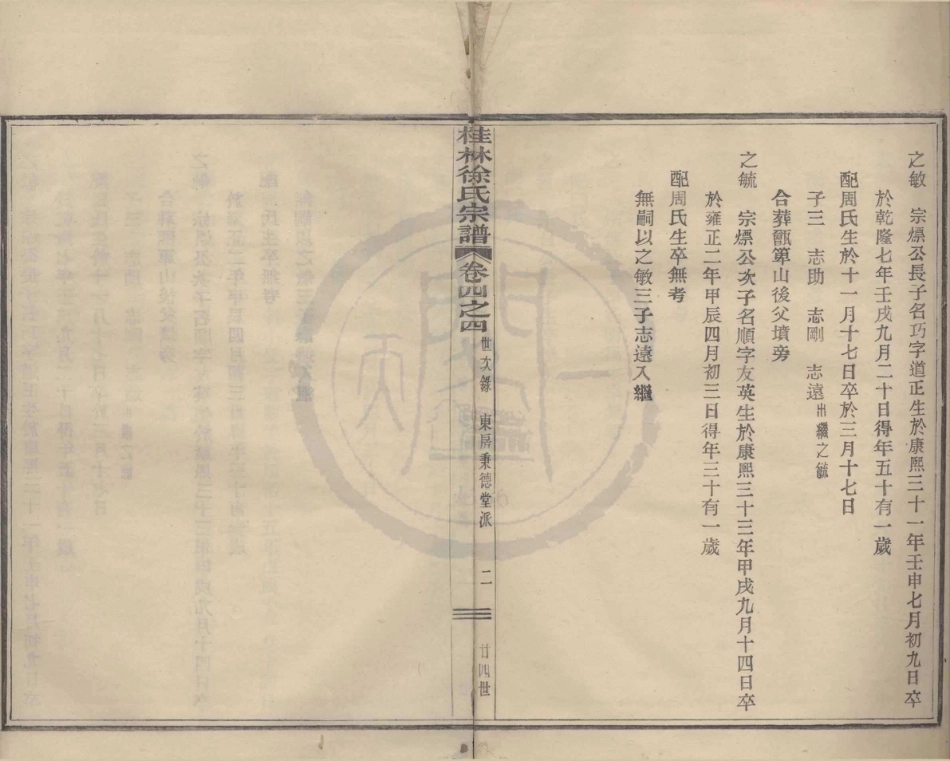 之敏　宗㷼公長子名巧字道正生於康熙三十一年壬申七月初九日卒
於乾隆七年壬戌九月二十日得年五十有一歲
配周氏生於十一月十七日卒於三月十七日
子三　志助　志剛　志遠出繼之毓
合葬甑箄山後父墳旁
之毓　宗㷼公次子名順字友英生於康熙三十三年甲戌九月十四日卒
於雍正二年甲辰四月初三日得年三十有一歲
配周氏生卒無考
無嗣以之敏三子志遠入繼
桂林徐氏宗譜　卷四之四　世次錄　東居秉德堂派　二　廿四世